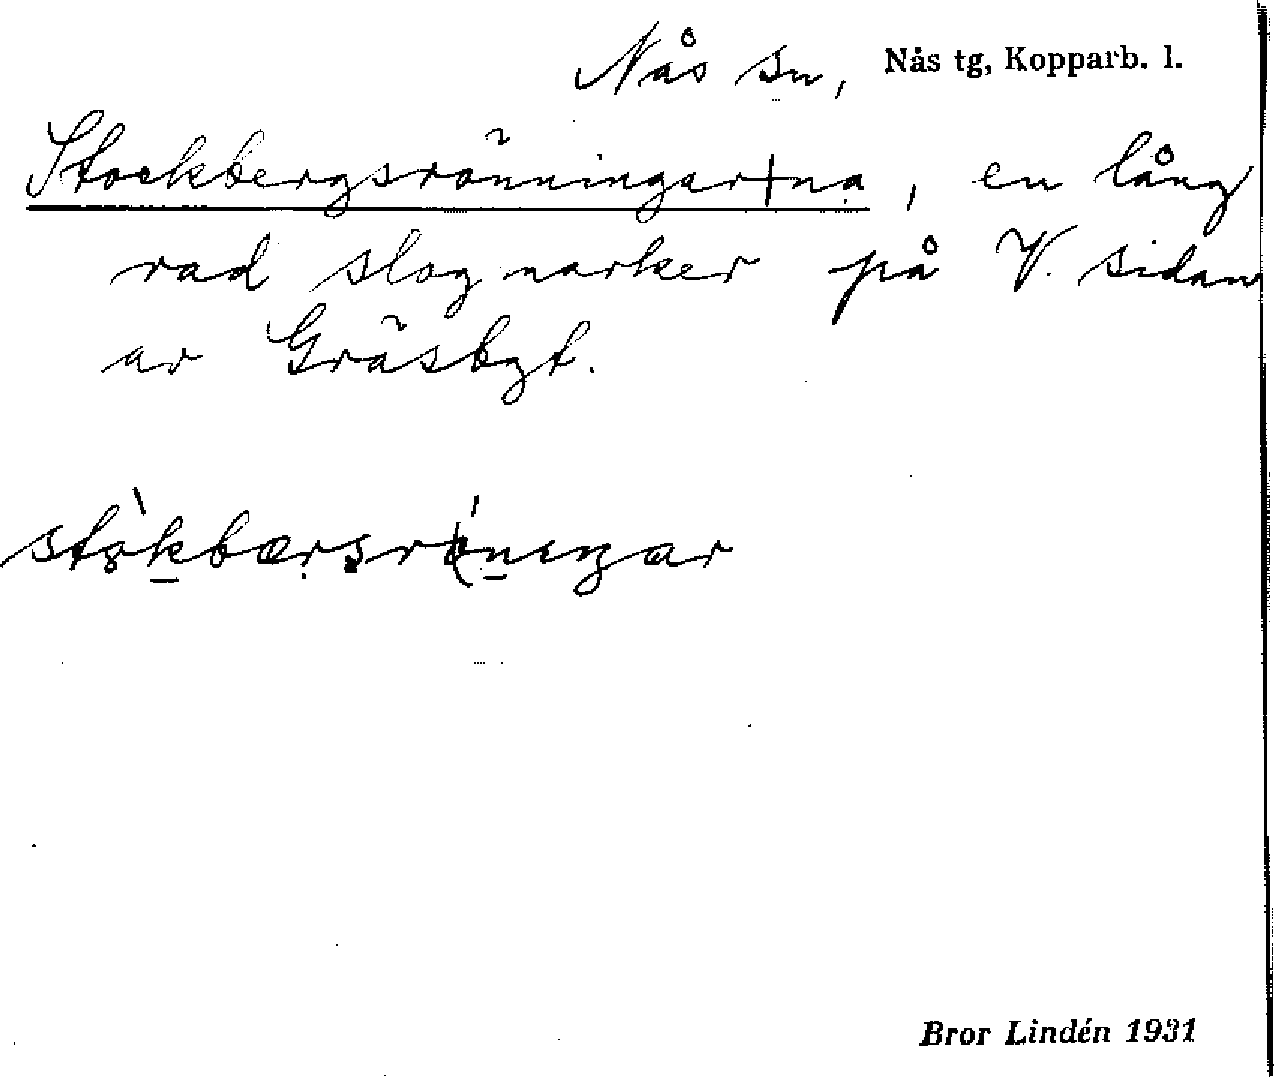 Nås sn, Nås tg, Kopparb. l.
Stockbergsrönningar+na, en lång
rad slogmarker på V. sidan
av Gräsbgt.
stòkbærsrö́niŋar
Bror Lindén 1931